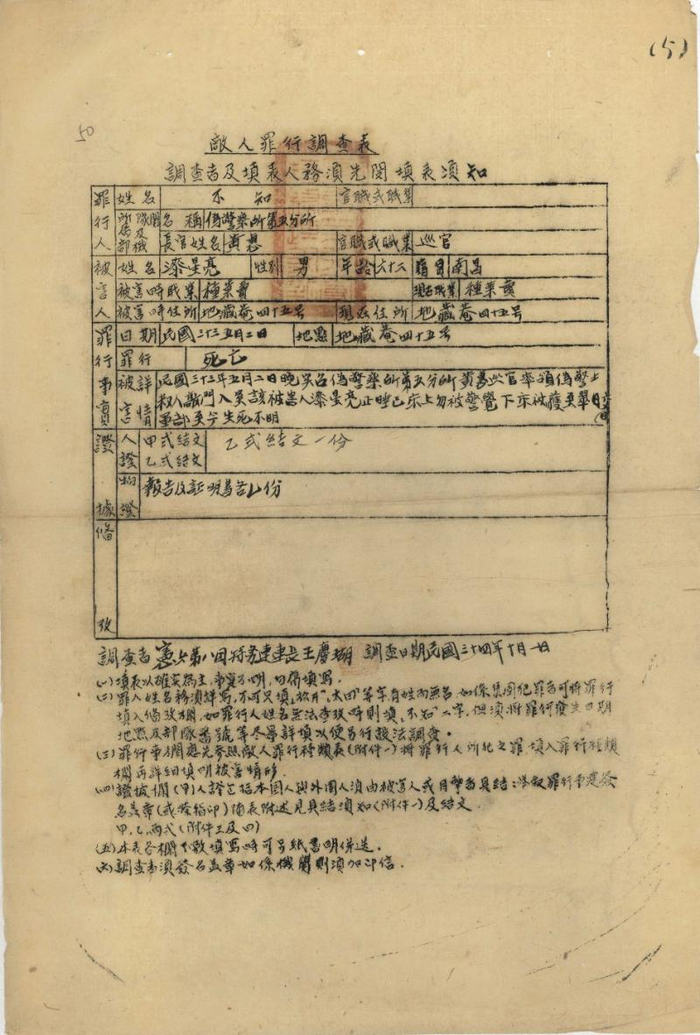 (5)
50
敵人罪行調查表
調查者及填表人務須先閱填表須知
罪行人 姓名 不知 官職或職業
所屬及部隊機關名稱 偽警察所第五分所
長官姓名 黃 官職或職業 巡官
被害人 姓名 漆星亮 性別 男 年齡 六十六 籍貫 南昌
被害時職業 種菜賣 現在職業 種菜賣
被害時住所 地藏菴四十五号 現在住所 地藏菴四十五号
罪行事實 日期 民國三十三五月二日 地點 地藏菴四十五号
罪行 死亡
被害詳情 民國三十三年五月二日晚 偽警察所第五分所黃 巡官率領偽警士
敲門入 該被害人漆星亮正睡已床上勿被警覺下床被獲至
部至今生死不明
證據 人證 甲式結文 乙式結文 乙式結文一份
物證 報告及証明 份
備攷
調查者 憲 第八団 連 長王 瑚 調查日期民國三十四年十月一日
(一)填表以確實為主,事實不明,勿得填寫。
(二)罪人姓名務須詳寫,不可只填,松井,太田,等字有姓而無名,如係集團犯罪者可將罪行
填入備攷欄,如罪行人姓名無法查攷時則填,不知,二字,但須將罪行發生日期
地點及部隊番號等尽量詳填以便另行設法調查。
(三)罪行事 欄應先參照敵人罪行種類表(附件一)將罪行人所犯之罪填入罪行種類
欄再詳細填明被害情形。
(四)證據欄(甲)人證包括本國人與外國人須由被害人或目擊者具結 罪行事實簽
名盖章(或 指印) 表附述見具結須知(附件一)及結文
甲、乙、兩式(附件三及四)
(五)本表各欄不敷填寫時可另紙書明併送。
(六)調查者須簽名盖章如係機關則須加印信。